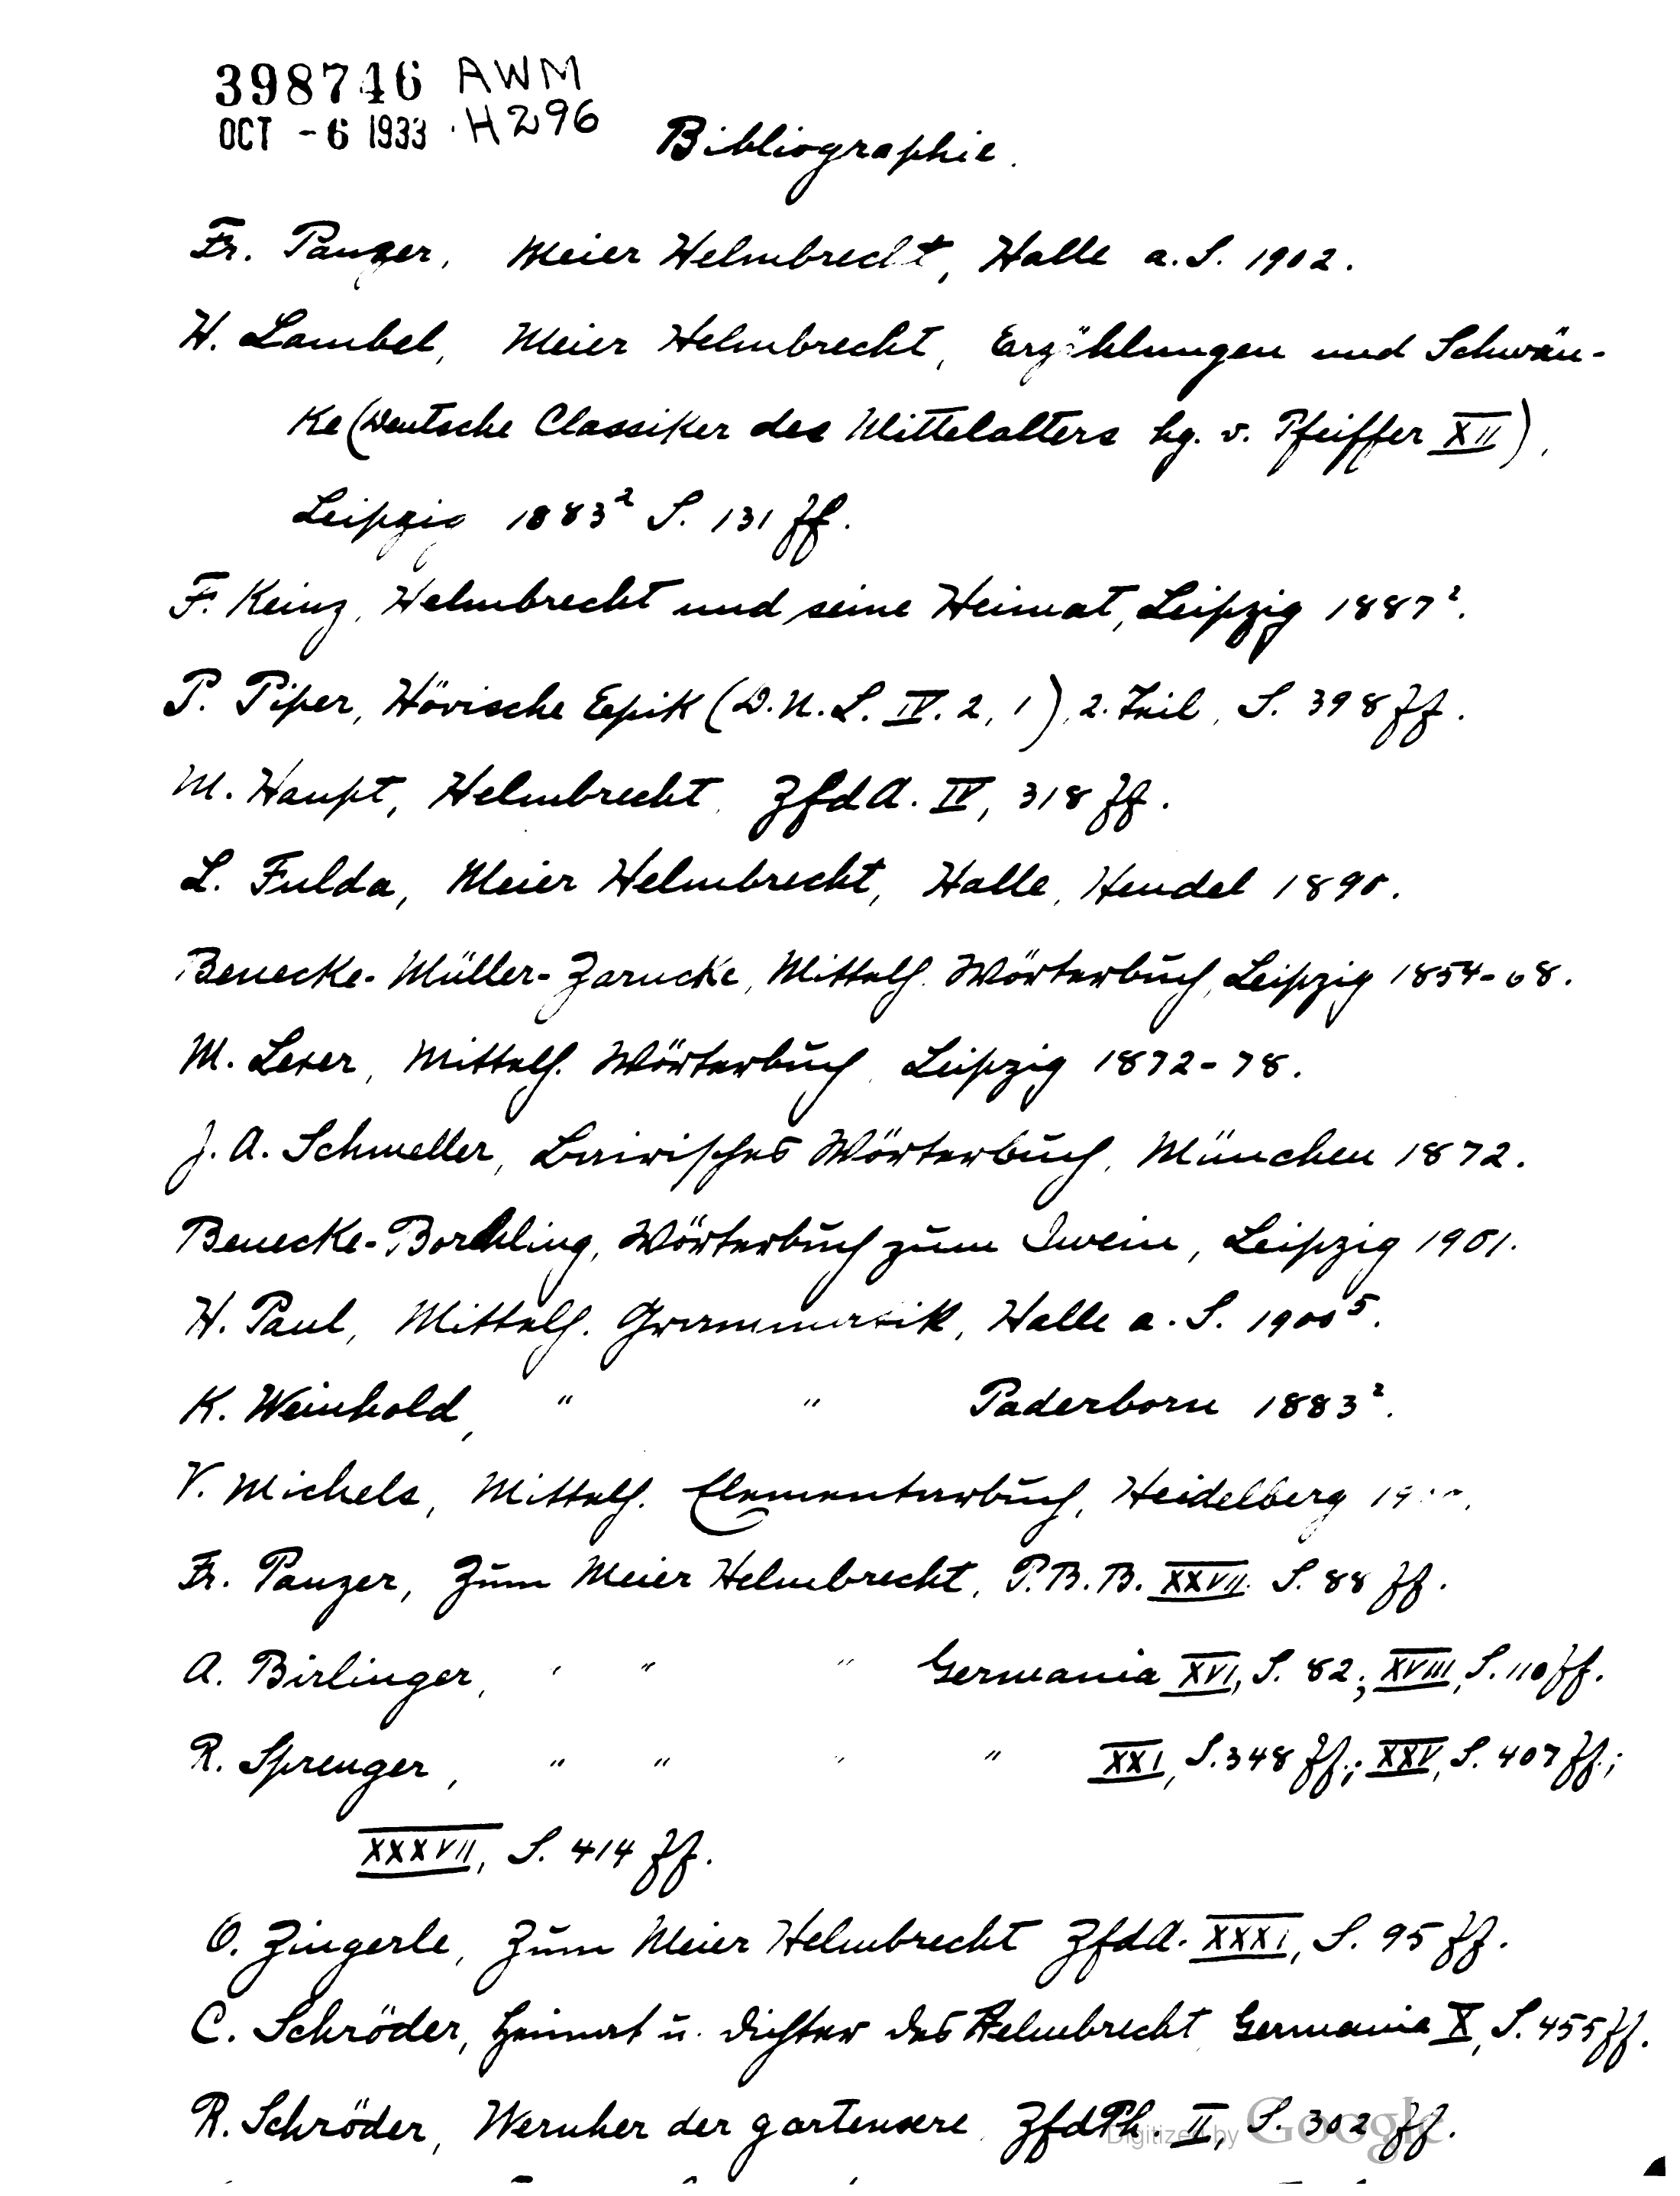 398746 AWM
OCT -6 1933 . H296
Bibliographie.
Fr. Panzer, Meier Helmbrecht, Halle a. S. 1902.
H. Lambel, Meier Helmbrecht, Erzählungen und Schwän-
ke (Deutsche Classiker des Mittelalters hg. v. Pfeiffer XII),
Leipzig 1883² S. 131 ff.
F. Keinz, Helmbrecht und seine Heimat, Leipzig 1887².
P. Piper, Hövische Epik (D. N. L. IV. 2, 1), 2. Teil, S. 398 ff.
M. Haupt, Helmbrecht, ZfdA. IV, 318 ff.
L. Fulda, Meier Helmbrecht, Halle, Hendel 1890.
Benecke-Müller-Zarncke, Mittelh. Wörterbuch, Leipzig 1854-68.
M. Lexer, Mittelh. Wörterbuch, Leipzig 1872-78.
J. A. Schmeller, Bairisches Wörterbuch, München 1872.
Benecke-Borchling, Wörterbuch zum Iwein, Leipzig 1901.
H. Paul, Mittelh. Grammatik, Halle a. S. 1900⁵.
K. Weinhold, " " Paderborn 1883².
V. Michels, Mittelh. Elementarbuch, Heidelberg
Fr. Panzer, Zum Meier Helmbrecht, P. B. B. XXVII. S. 88 ff.
A. Birlinger, " " " Germania XVI, S. 82; XVIII, S. 110 ff.
R. Sprenger, " " " " XXI, S. 348 ff.; XXV, S. 407 ff.;
XXXVII, S. 414 ff.
O. Zingerle, Zum Meier Helmbrecht ZfdA. XXXI, S. 95 ff.
C. Schröder, Heimat u. Dichter des Helmbrecht, Germania X, S. 455 ff.
R. Schröder, Wernher der gartenaere, ZfdPh. II, S. 302 ff.
Digitized by Google